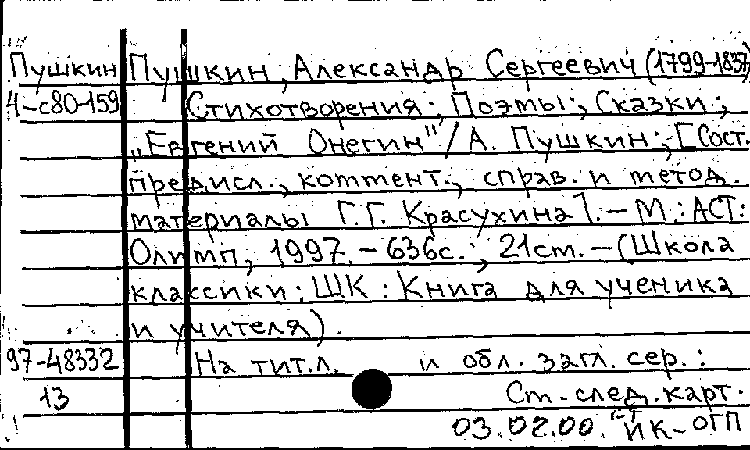 Пушкин Пушкин, Александр Сергеевич (1799-1837)
4-с80-159 Стихотворения; Поэмы; Сказки;
„Евгений Онегин"/А. Пушкин; [Сост.
предисл., коммент., справ. и метод.
материалы Г.Г. Красухина]. – М.: АСТ:
Олимп, 1997. – 636с.; 21см. – (Школа
классики: ШК: Книга для ученика
и учителя).
97-48332 На тит.л. и обл. загл. сер.:
13 См. след. карт.
03.02.00. ИК-ОГП